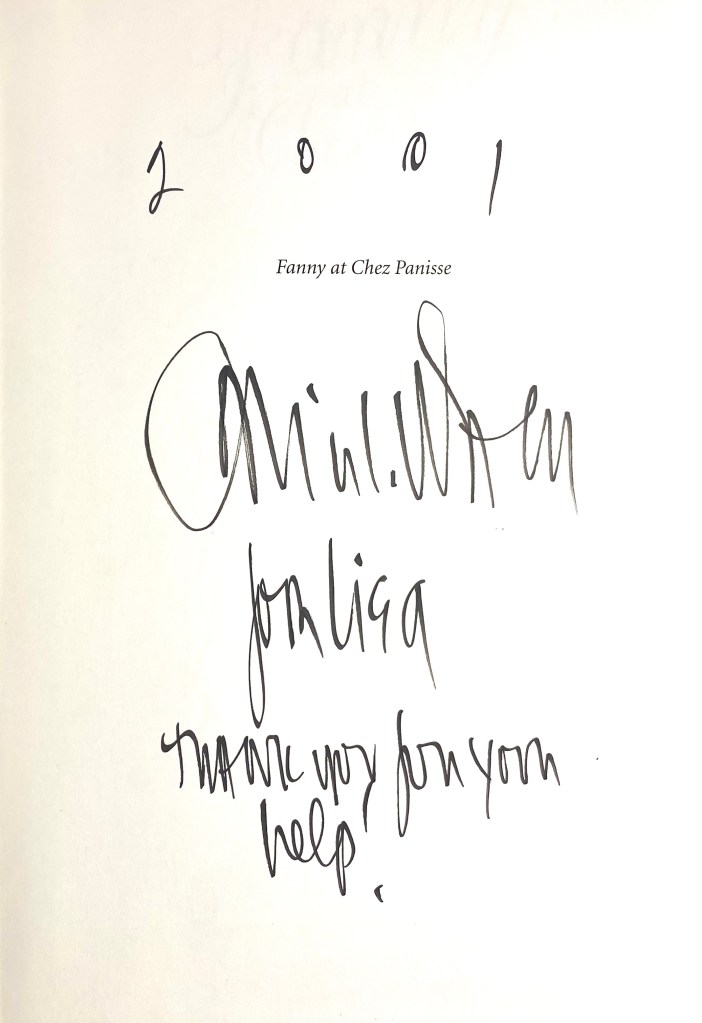 2001
Fanny at Chez Panisse
for Lisa
THANK you for your
help.